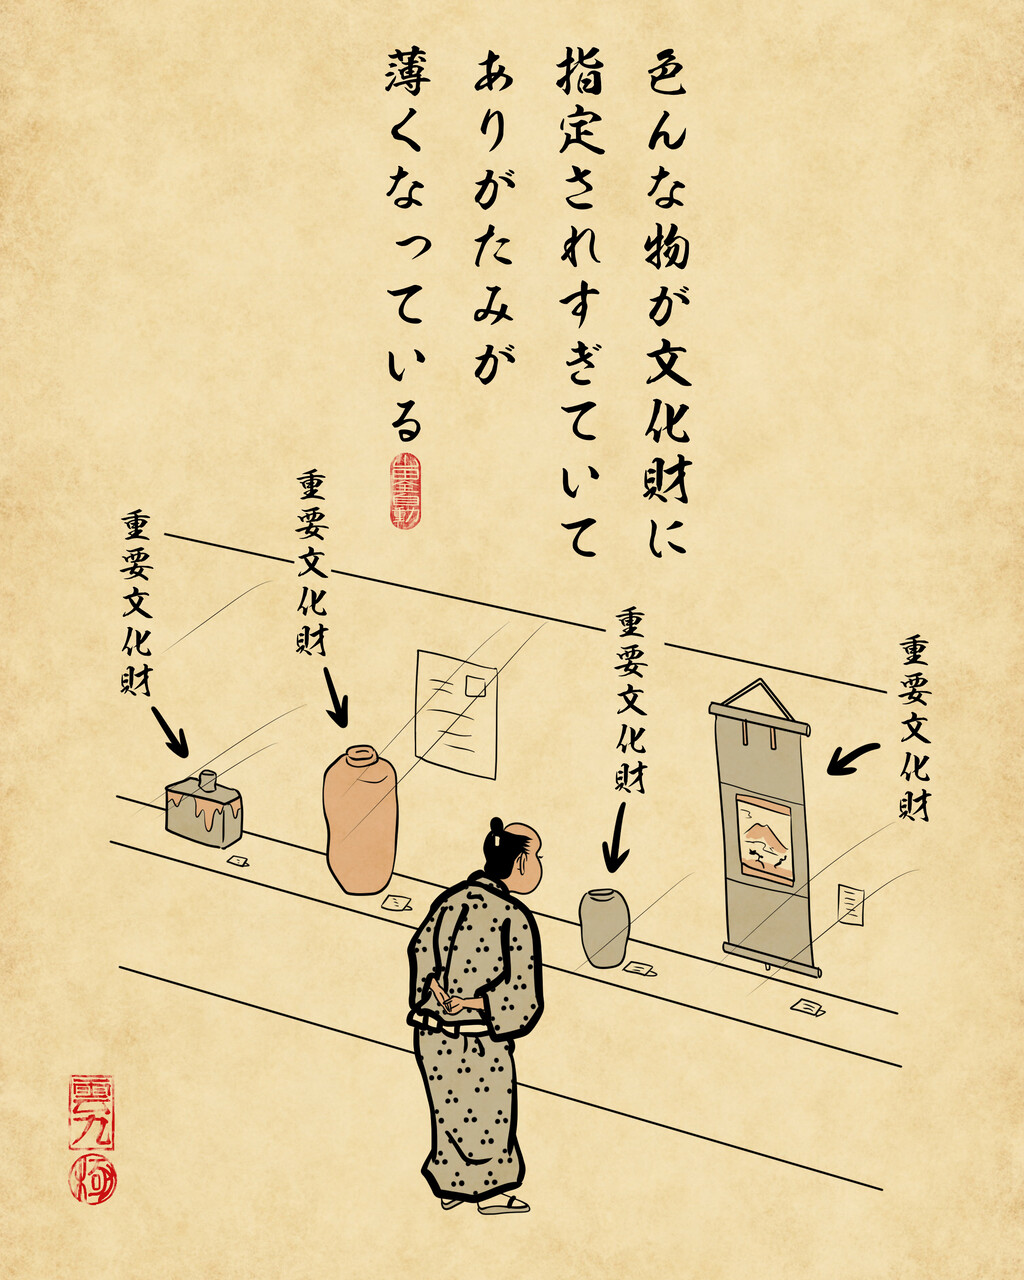 色んな物が文化財に
指定されすぎていて
ありがたみが
薄くなっている
重要文化財
重要文化財
重要文化財
重要文化財